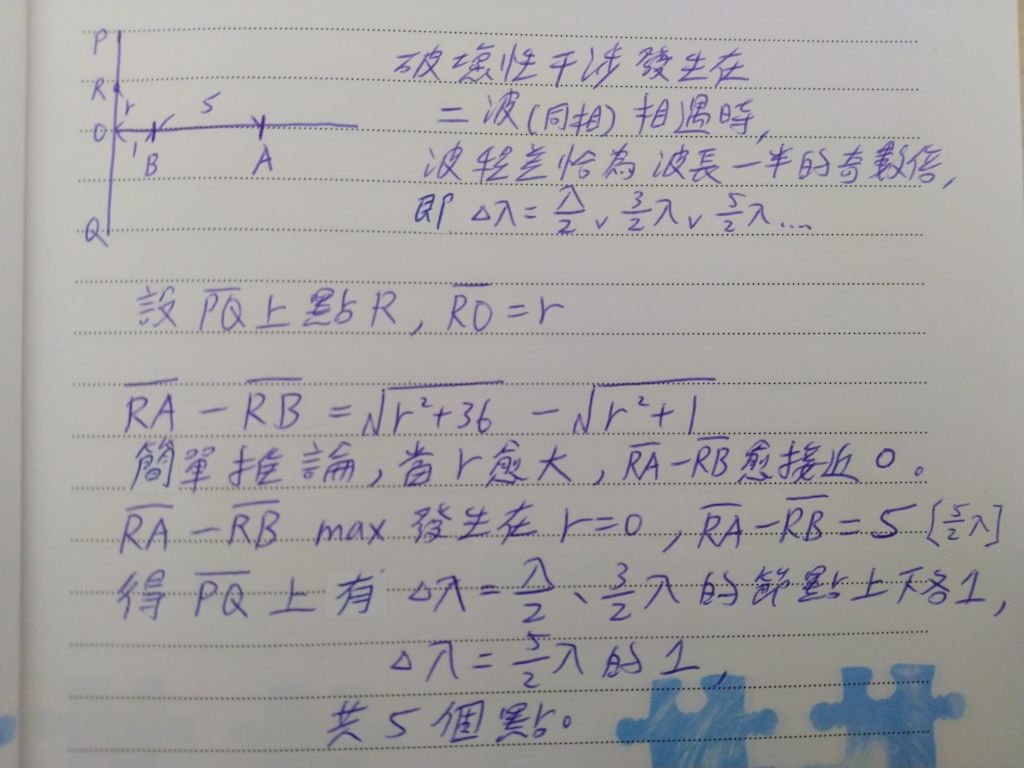 P
R
r
5
O
1
B
A
Q
破壞性干涉發生在
二波(同相)相遇時,
波程差恰為波長一半的奇數倍,
即 Δλ = λ/2、3/2λ、5/2λ...
設 P̅Q̅ 上點 R, R̅O̅ = r
R̅A̅ - R̅B̅ = √(r²+36) - √(r²+1)
簡單推論,當 r 愈大, R̅A̅-R̅B̅ 愈接近 0。
R̅A̅ - R̅B̅ max 發生在 r=0, R̅A̅-R̅B̅ = 5 [5/2λ]
得 P̅Q̅ 上有 Δλ = λ/2、3/2λ 的節點上下各1,
Δλ = 5/2λ 的1,
共5個點。